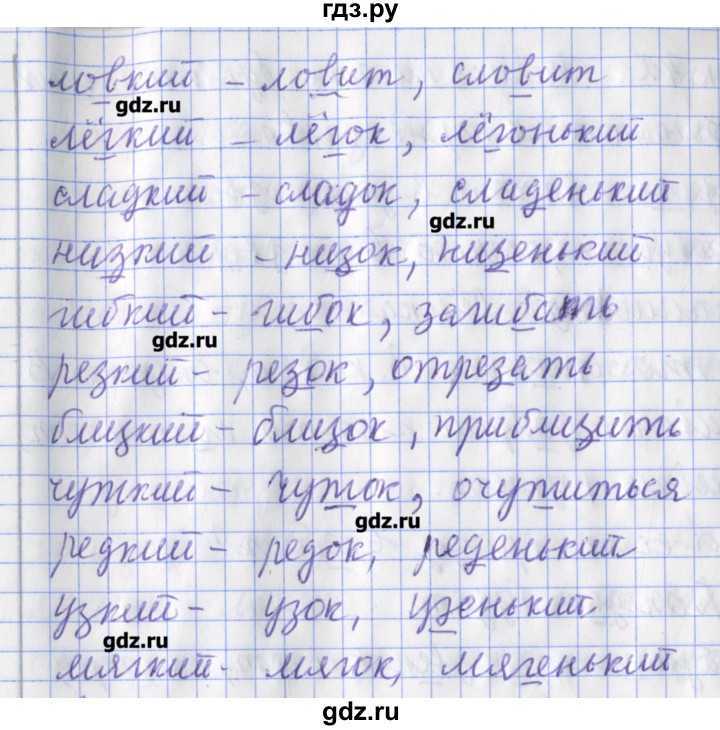 гдз.ру
ловкий – ловит, словит
gdz.ru
лёгкий – лёгок, лёгонький
сладкий – сладок, сладенький
gdz.ru
низкий – низок, низенький
гибкий – гибок, загибать
gdz.ru
резкий – резок, отрезать
близкий – близок, приблизить
чуткий – чуток, очутиться
gdz.ru
редкий – редок, реденький
узкий – узок, узенький
gdz.ru
мягкий – мягок, мягенький
gdz.ru